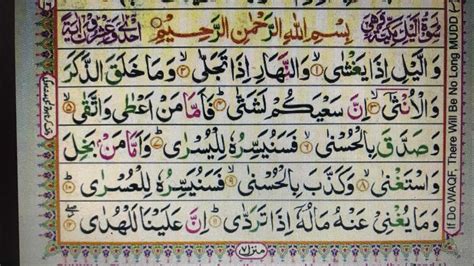 سورة اليل مكية وهي احدى وعشرون اية
بِسْمِ اللهِ الرَّحْمٰنِ الرَّحِيْمِ
وَالَّيْلِ اِذَا يَغْشٰى ۙ﴿۱﴾ وَالنَّهَارِ اِذَا تَجَلّٰى ۙ﴿۲﴾ وَمَا خَلَقَ الذَّكَرَ
وَالْاُنْثٰٓى ۙ﴿۳﴾ اِنَّ سَعْيَكُمْ لَشَتّٰى ؕ﴿۴﴾ فَاَمَّا مَنْ اَعْطٰى وَاتَّقٰى ۙ﴿۵﴾
وَصَدَّقَ بِالْحُسْنٰى ۙ﴿۶﴾ فَسَنُيَسِّرُهٗ لِلْيُسْرٰى ؕ﴿۷﴾ وَاَمَّا مَنْۢ بَخِلَ
وَاسْتَغْنٰى ۙ﴿۸﴾ وَكَذَّبَ بِالْحُسْنٰى ۙ﴿۹﴾ فَسَنُيَسِّرُهٗ لِلْعُسْرٰى ؕ﴿۱۰﴾
وَمَا يُغْنِيْ عَنْهُ مَالُهٗٓ اِذَا تَرَدّٰى ؕ﴿۱۱﴾ اِنَّ عَلَيْنَا لَلْهُدٰى ۖ﴿۱۲﴾
منزل ۷
If Do WAQF, There Will Be No Long MUDD